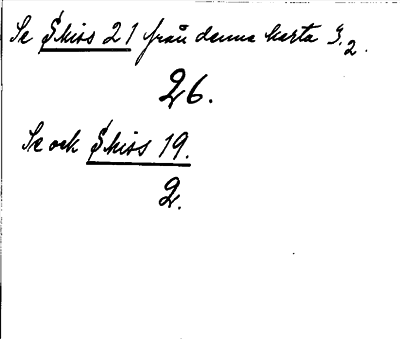 Se Skiss 21 från denna karta 3.2.
26.
Se och Skiss 19.
2.